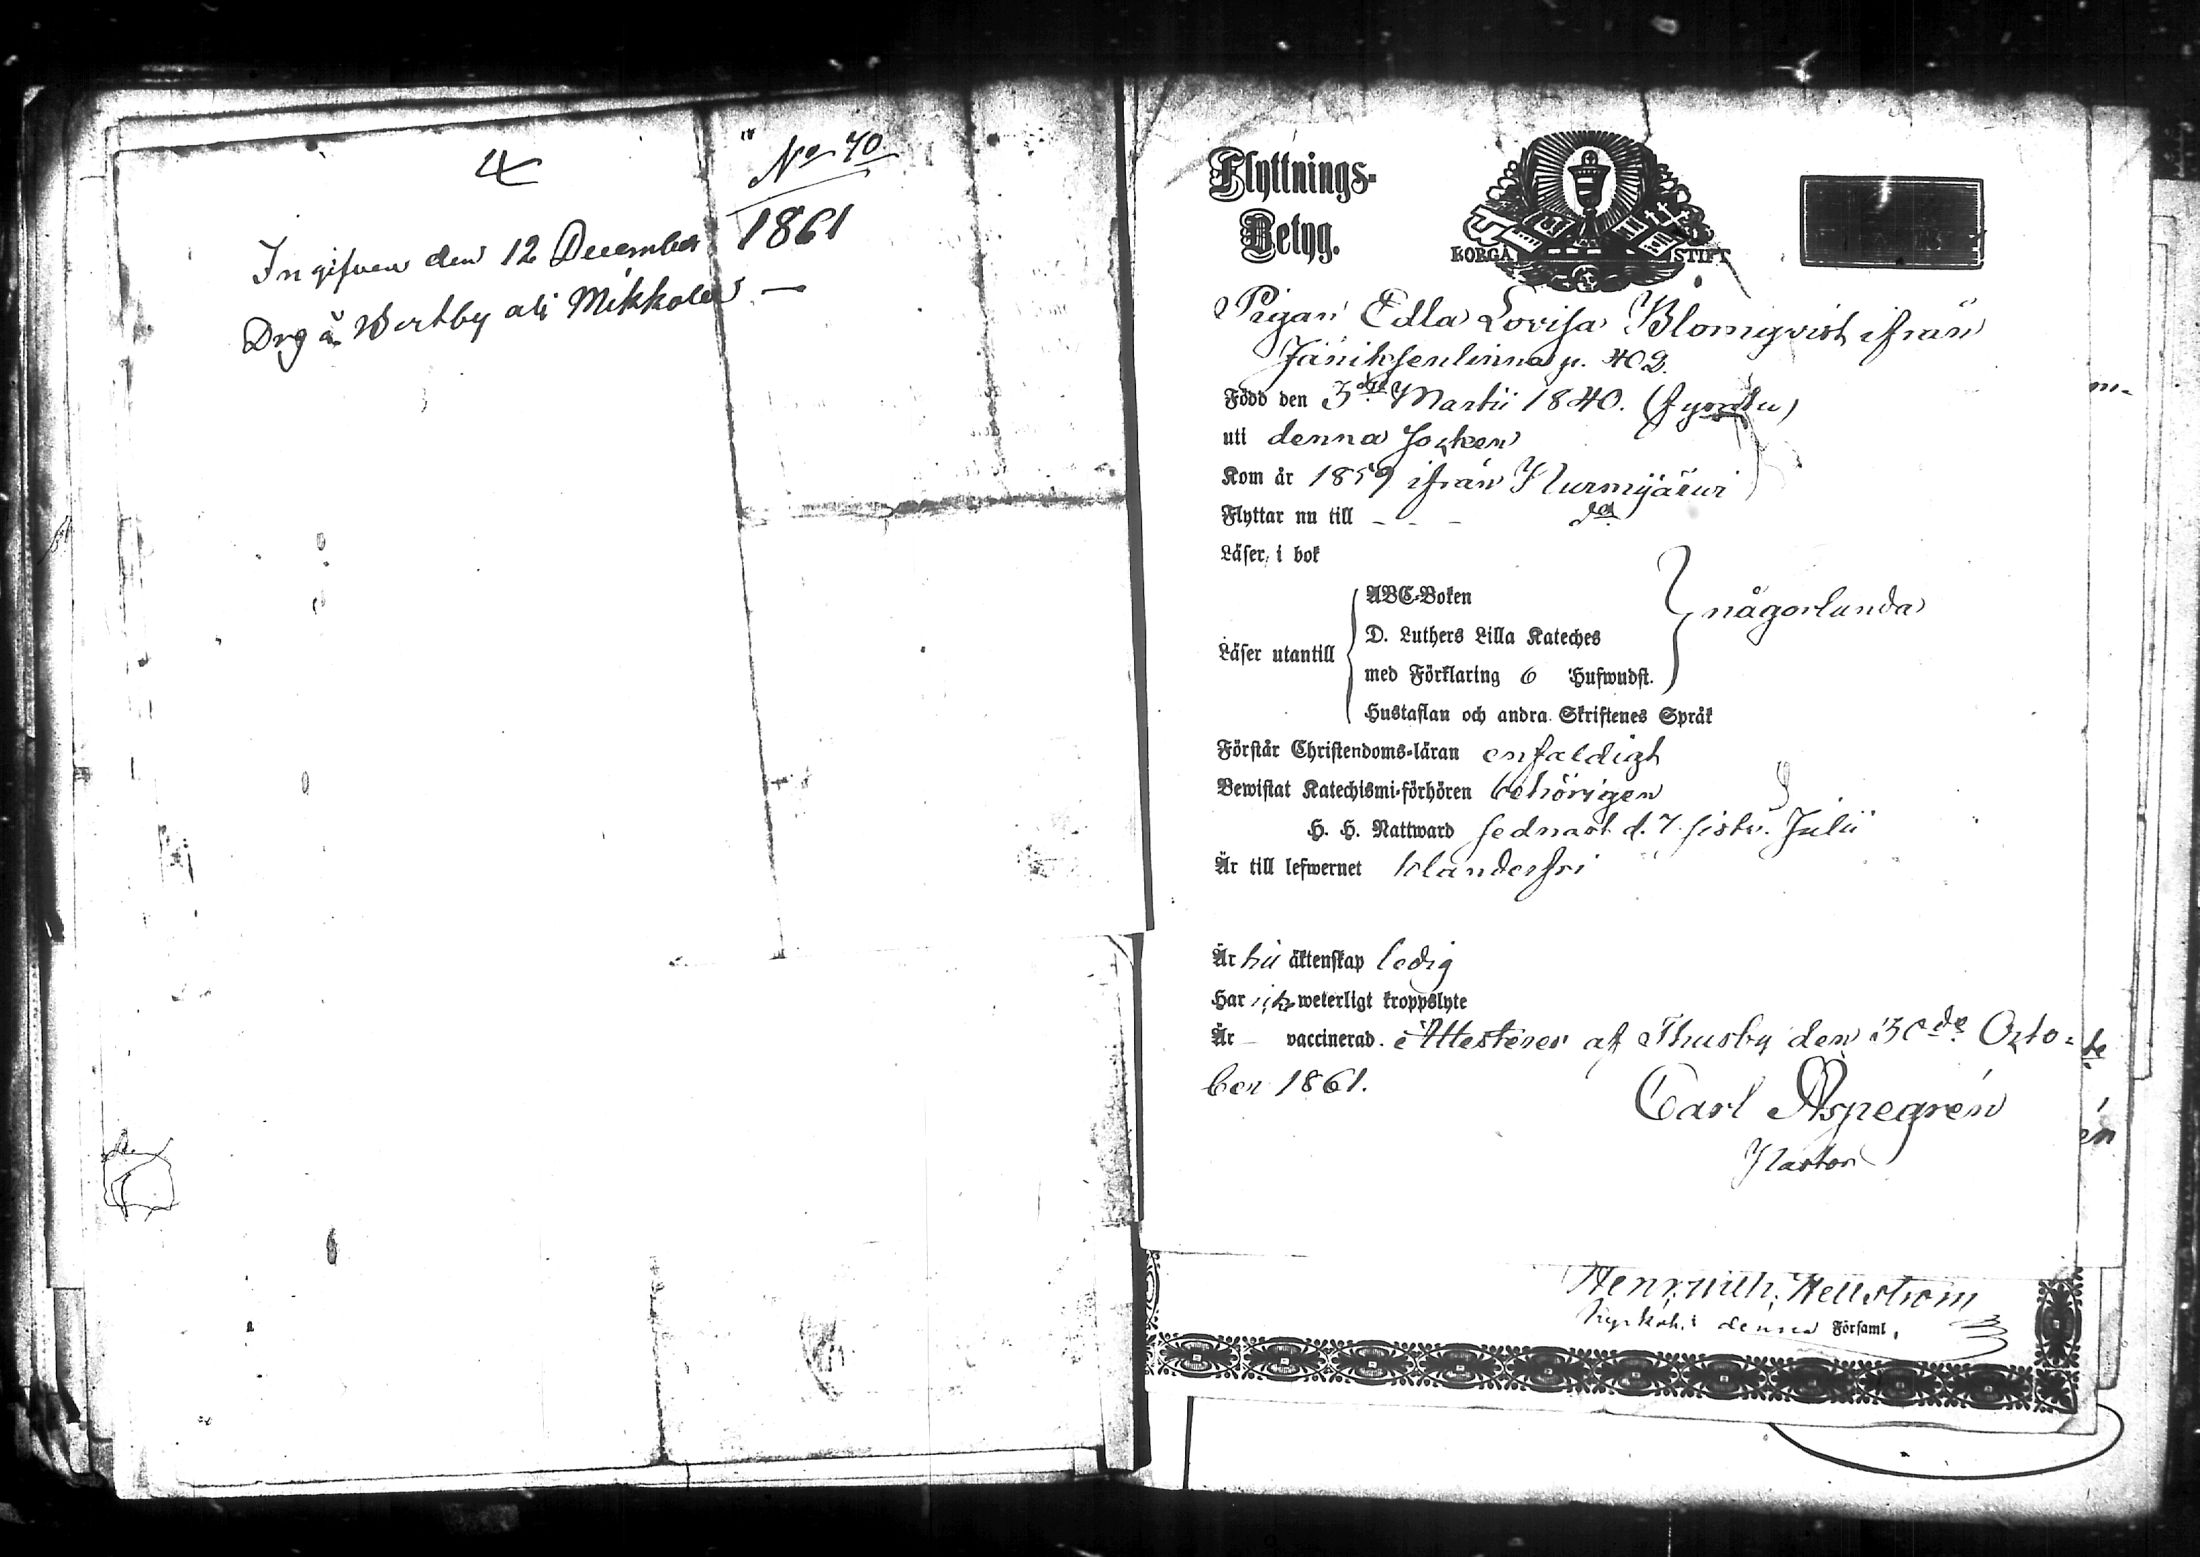 4
No 70
1861
Ingifven den 12 December
Drg å Wertby ali Mikkola
Flyttnings-
Betyg.
BORGÅ STIFT
Pigan Edla Lovisa Blomqvist ifrån
Jäniksenlinna p. 402.
Född den 3de Martii 1840. (fyratio)
uti denna socken
Kom år 1859 ifrån Nurmijärvi
Flyttar nu till - - - do
Läser, i bok
ABC-Boken
D. Luthers Lilla Kateches
någorlunda
Läser utantill
med Förklaring 6 Hufwudst.
Hustaflan och andra Skriftenes Språk
Förstår Christendoms-läran enfaldigt
Bewistat Katechismi-förhören behörigen
H. H. Nattward sednast d. 7 sistv. Julii
Är till lefwernet klanderfri
Är till äktenskap ledig
Har icke weterligt kroppslyte
Är – vaccinerad. Attesterar af Thusby den 30de Octo-
ber 1861.
Carl Aspegrén
Pastor
Henr. Wilh. Hellström
Kyrkoh. i denna Församl.